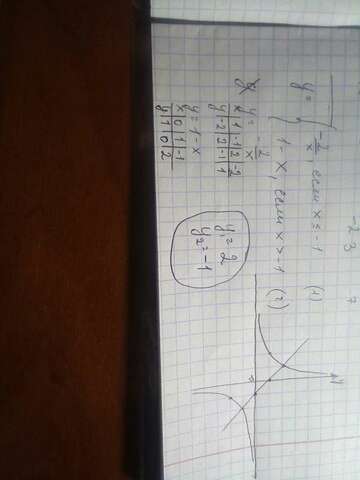 -2 3 7
y = { -2/x, если x ≤ -1 (1)
1 - x, если x > -1 (2)
y = -2/x
x | 1 | -1 | 2 | -2
y | -2 | 2 | -1 | 1
y = 1 - x
x | 0 | 1 | -1
y | 1 | 0 | 2
y₁ = 2
y₂ = -1